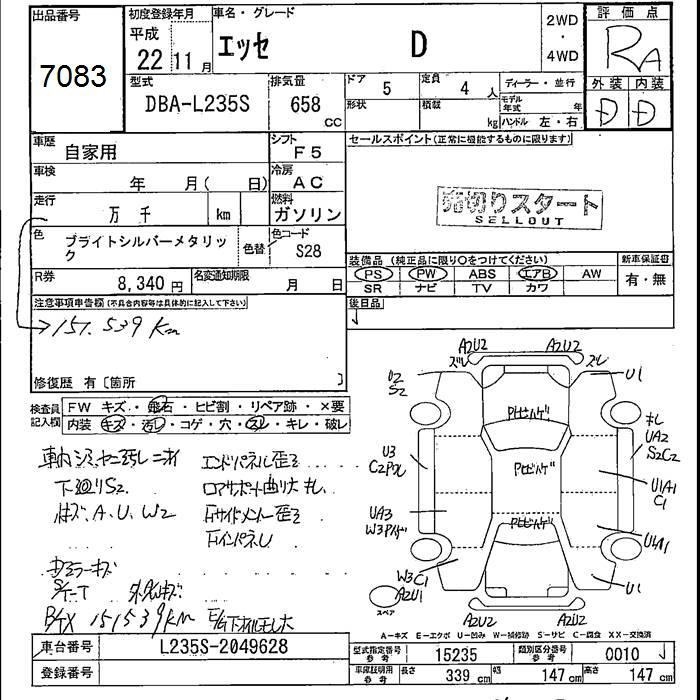 出品番号
7083
初度登録年月
平成
22 11 月
車名・グレード
エッセ D
2WD
・
4WD
評価点
RA
外装 内装
D D
型式
DBA-L235S
排気量
658
CC
ドア 5
定員 4 人
形状
積載 kg
ディーラー・並行
モデル年式 年
ハンドル 左・右
車歴 自家用
シフト F5
車検 年 月( 日)
冷房 AC
走行 万 千 km
燃料 ガソリン
色 ブライトシルバーメタリック
色替
色コード S28
R券 8,340 円
名変通知期限 月 日
セールスポイント(正常に機能するものに限ります)
売切りスタート
SELLOUT
装備品(純正品に限り○をつけてください)
新車保証書
PS PW ABS エアB AW
SR ナビ TV カワ
有・無
後日品
注意事項申告欄(不具合内容等は具体的に記入して下さい)
151,539 km
修復歴 有〔箇所 〕
検査員記入欄
FW キズ・飛石・ヒビ割・リペア跡・×要
内装 キズ・汚レ・コゲ・穴・スレ・キレ・破レ
車内シミヤニ汚レニオイ
エンドパネル歪ミ
下廻りS2
ロアサポート曲り大
キズ、A、U、W2
インパネU
151539km
A2U2 A2U2
ズレ ズレ
U2
S2
U1
U3
UA2
S2C2
UA3
U1A1
C1
U1A1
W3C1
A2U1
U1
スペア
A2U2 A2U2
A-キズ E-エクボ U-凹み W-補修跡 S-サビ C-腐食 XX-交換済
車台番号 L235S-2049628
登録番号
型式指定番号
参考
15235
類別区分番号
参考
0010
車庫証明用
参考
長さ 339 cm
幅 147 cm
高さ 147 cm